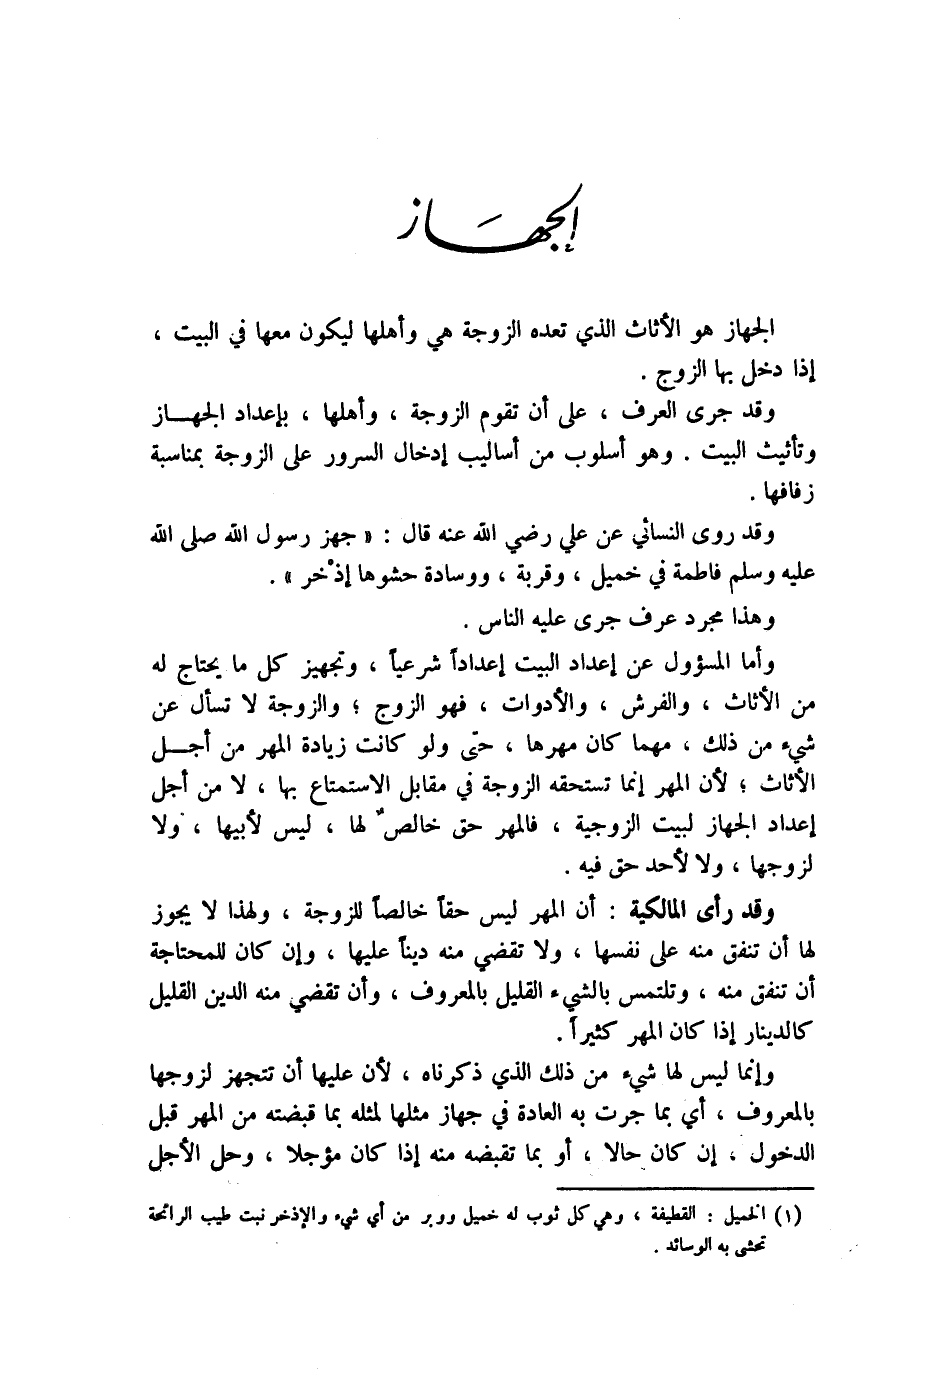 الجهاز
الجهاز هو الأثاث الذي تعده الزوجة هي وأهلها ليكون معها في البيت ،
إذا دخل بها الزوج .
وقد جرى العرف ، على أن تقوم الزوجة ، وأهلها ، بإعداد الجهاز
وتأثيث البيت . وهو أسلوب من أساليب إدخال السرور على الزوجة بمناسبة
زفافها .
وقد روى النسائي عن علي رضي الله عنه قال : « جهز رسول الله صلى الله
عليه وسلم فاطمة في خميل ، وقربة ، ووسادة حشوها إذْخر » .
وهذا مجرد عرف جرى عليه الناس .
وأما المسؤول عن إعداد البيت إعداداً شرعياً ، وتجهيز كل ما يحتاج له
من الأثاث ، والفرش ، والأدوات ، فهو الزوج ؛ والزوجة لا تسأل عن
شيء من ذلك ، مهما كان مهرها ، حتى ولو كانت زيادة المهر من أجل
الأثاث ؛ لأن المهر إنما تستحقه الزوجة في مقابل الاستمتاع بها ، لا من أجل
إعداد الجهاز لبيت الزوجية ، فالمهر حق خالصٌ لها ، ليس لأبيها ، ولا
لزوجها ، ولا لأحد حق فيه .
وقد رأى المالكية : أن المهر ليس حقاً خالصاً للزوجة ، ولهذا لا يجوز
لها أن تنفق منه على نفسها ، ولا تقضي منه ديناً عليها ، وإن كان للمحتاجة
أن تنفق منه ، وتلتمس بالشيء القليل بالمعروف ، وأن تقضي منه الدين القليل
كالدينار إذا كان المهر كثيراً .
وإنما ليس لها شيء من ذلك الذي ذكرناه ، لأن عليها أن تتجهز لزوجها
بالمعروف ، أي بما جرت به العادة في جهاز مثلها لمثله بما قبضته من المهر قبل
الدخول ، إن كان حالا ، أو بما تقبضه منه إذا كان مؤجلا ، وحل الأجل
(١) الخميل : القطيفة ، وهي كل ثوب له خميل ووبر من أي شيء والإذخر نبت طيب الرائحة
تحشى به الوسائد .